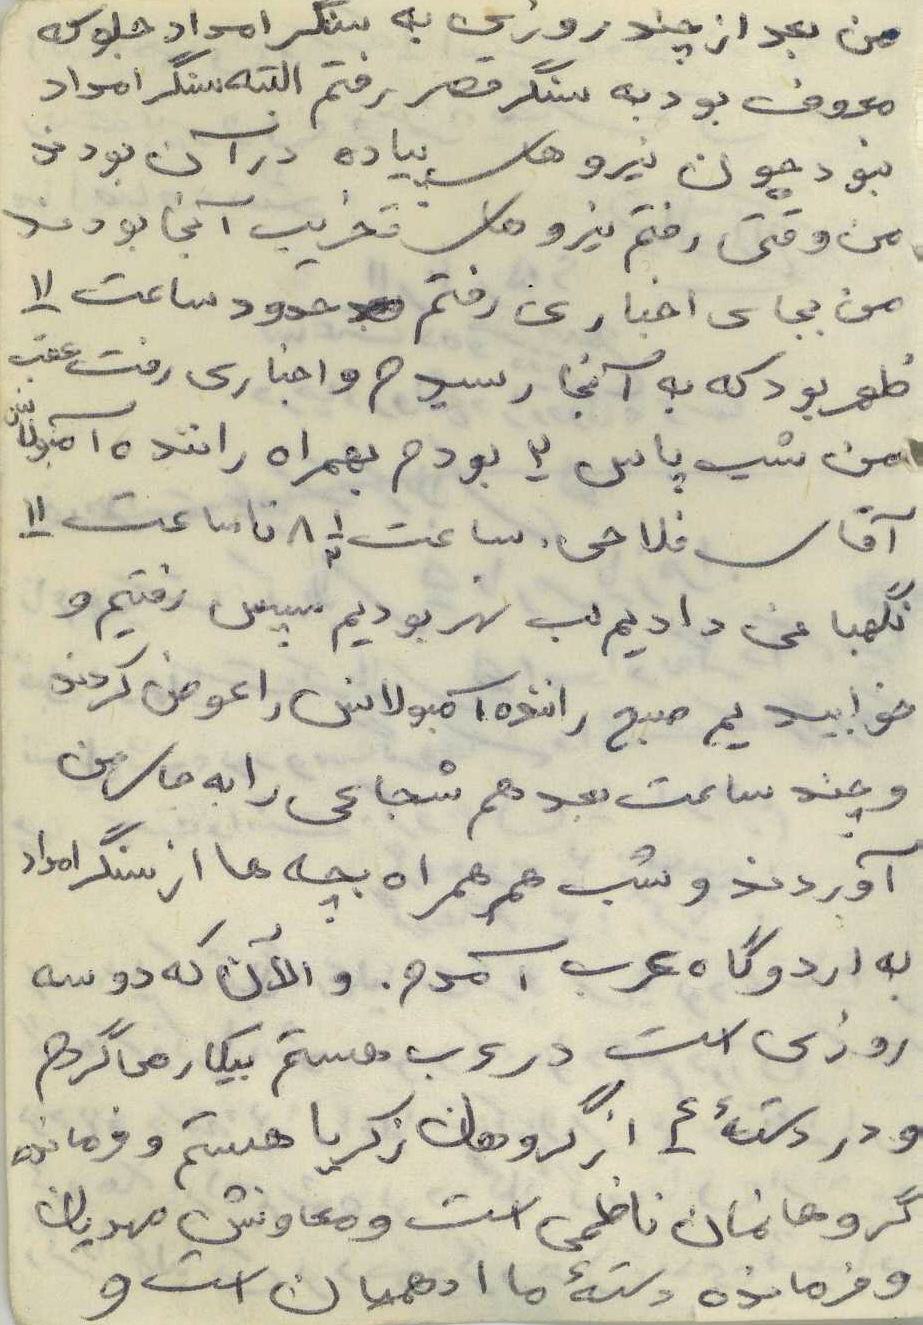 من بعد از چند روزی به سنگر امداد جلو که
معروف بود به سنگر قصر رفتم البته سنگر امداد
نبود چون نیروهای پیاده در آن بودند
من وقتی رفتم نیروهای تخریب آنجا بودند
من بجای اخباری رفتم حدود ساعت ۱۱
ظهر بود که به آنجا رسیدم و اخباری رفت عقب
من شب پاس ۲ بودم بهمراه راننده آمبولانس
آقای فلاحی. ساعت ۸ ۱/۲ تا ساعت ۱۱
نگهبانی دادیم لب نهر بودیم سپس رفتیم و
خوابیدیم صبح راننده آمبولانس را عوض کردند
و چند ساعت بعد هم شجاعی را به جای من
آوردند و شب هم همراه بچه ها از سنگر امداد
به اردوگاه عرب آمدم. و الآن که دو سه
روزی است در عرب هستم بیکار می گردم
و در دستهٔ ۴ از گروهان زکریا هستم و فرمانده
گروهانمان ناظمی است و معاونش مهدیان
و فرمانده دستهٔ ما ادهمیان است و